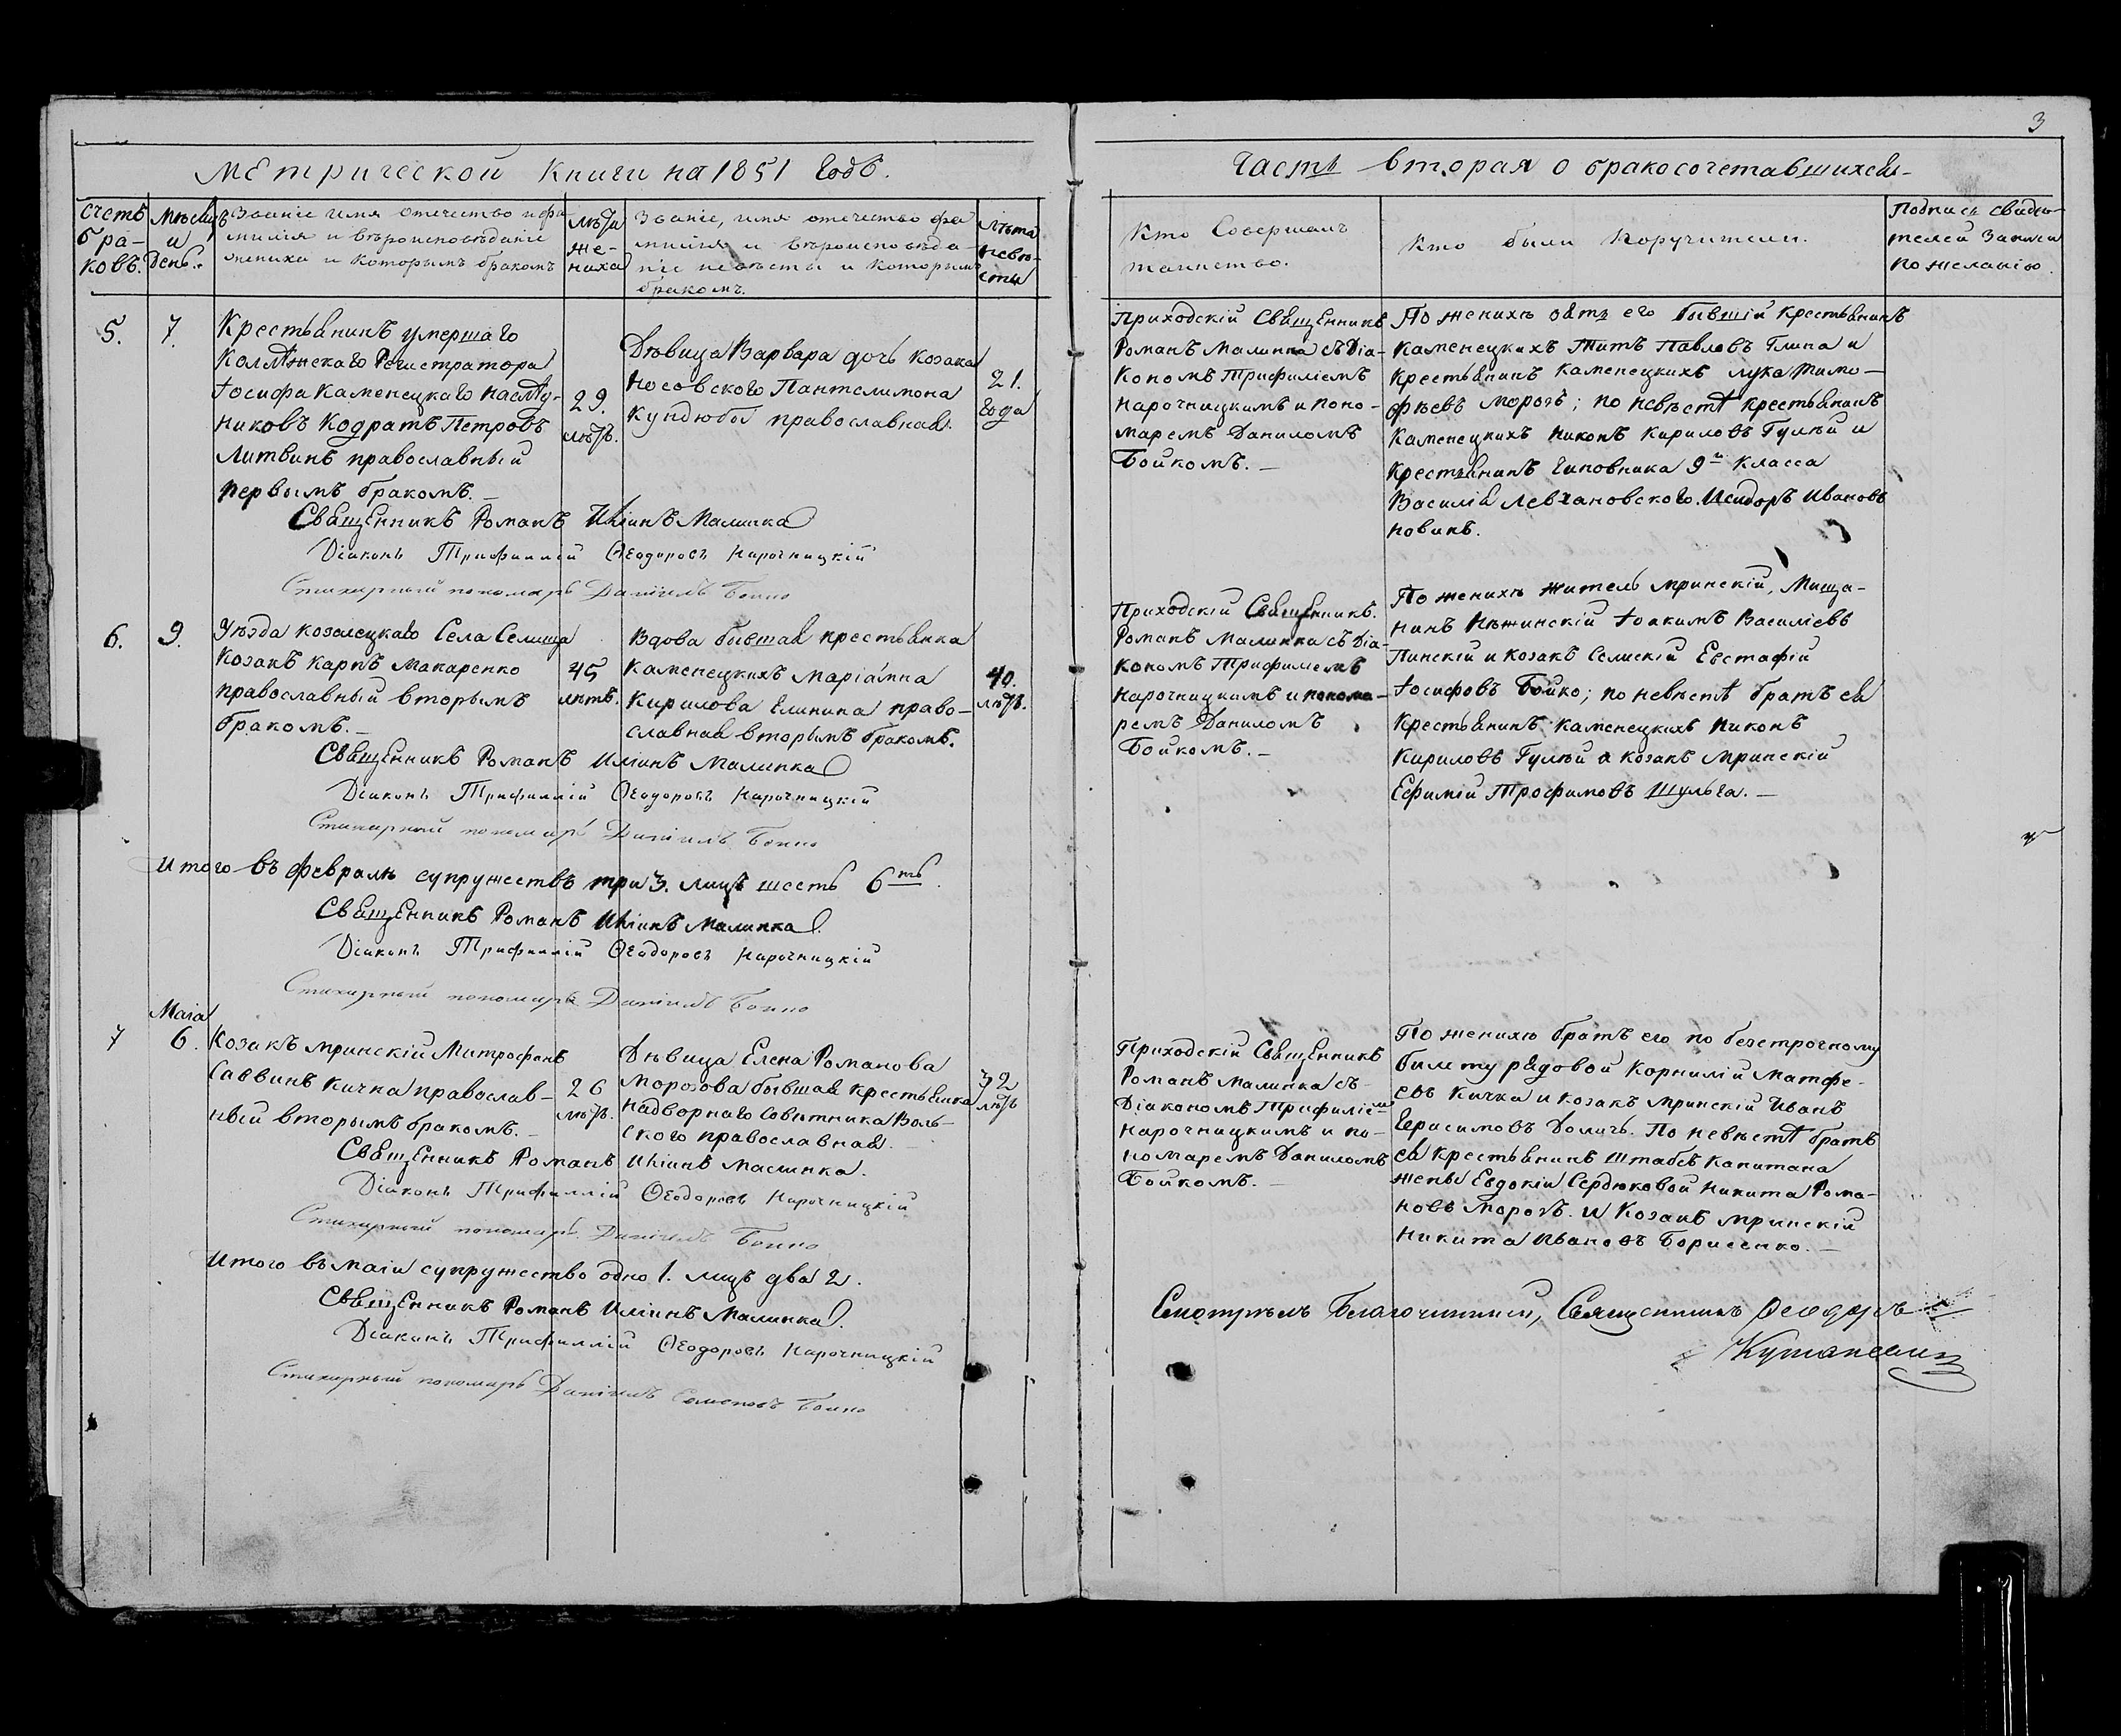 3
Метрической Книги на 1851 годъ.
Часть вторая о бракосочетавшихся
Счетъ бра-ковъ.
Мѣсяцъ и день.
Званіе имя отечество и фа-
милія и вѣроисповѣданіе
жениха и которымъ бракомъ
лѣта
же-
ниха
Званіе, имя отечество фа
милія и вѣроисповѣда-
ніе невѣсты и которымъ
бракомъ.
лѣта
невѣ-
сты
Кто Совершалъ
таинство.
Кто были поручители.
Подпись свидѣ-
телей записи
по желанію.
5.
7.
Крестьянинъ умершаго
Коллѣжскаго Регистратора
Іосифа Каменецкаго наслѣд-
никовъ Кодратъ Петровъ
Литвинъ православный
первымъ бракомъ.
29.
лѣтъ.
Дѣвица Варвара дочь козака
Носовского Пантелимона
Кундюбы православная.
21.
года
Приходскій Священникъ
Романъ Малинка съ Діа-
кономъ Трифиліемъ
Нарочницкимъ и поно-
маремъ Даниломъ
Бойкомъ.
По женихѣ зять его бывшій крестьянинъ
Каменецкихъ Титъ Павловъ Глина и
крестьянинъ Каменецкихъ Лука Тимо-
фѣевъ Морозъ; по невѣстѣ крестьянинъ
Каменецкихъ Никонъ Кириловъ Гулѣй и
крестьянинъ чиновника 9й класса
Василія Левхановского Исидоръ Ивановъ
Новикъ.
Священникъ Романъ Иліинъ Малинка
Діаконъ Трифиллій Ѳеодоровъ Нарочницкій
Стихарный пономарь Даніилъ Бойко
6.
9.
Уѣзда Козелецкаго Села Селища
Козакъ Карпъ Макаренко
православный вторымъ
бракомъ.
45
лѣтъ.
Вдова бывшая крестьянка
Каменецкихъ Маріамна
Кирилова Глинина право-
славная вторымъ бракомъ.
40.
лѣтъ.
Приходскій Священникъ.
Романъ Малинка съ Діа-
кономъ Трифиліемъ
Нарочницкимъ и понома-
ремъ Даниломъ
Бойкомъ.
По женихѣ житель Мринскій, Мища-
нинъ Нѣжинскій Іоакимъ Василіевъ
Пинскій и козакъ Селискій Евстафій
Іосифовъ Бойко; по невѣстѣ братъ ея
Крестьянинъ Каменецкихъ Никонъ
Кириловъ Гулѣй и козакъ Мринскій
Ефимій Трофимовъ Шульга.
Священникъ Романъ Иліинъ Малинка
Діаконъ Трифиллій Ѳеодоровъ Нарочницкій
Стихарный пономарь Даніилъ Бойко
Итого въ Февралѣ супружествъ три 3. лицъ шесть 6ть.
Священникъ Романъ Иліинъ Малинка.
Діаконъ Трифиллій Ѳеодоровъ Нарочницкій
Стихарный пономарь Даніилъ Бойко
7
Маія
6.
Козакъ Мринскій Митрофанъ
Саввинъ Кичка православ-
ный вторымъ бракомъ.
26
лѣтъ.
Дѣвица Елена Романова
Морозова бывшая крестьянка
Надворнаго Совѣтника Воль-
ского православная.
32
лѣтъ
Приходскій Священникъ
Романъ Малинка съ
Діакономъ Трифиліемъ
Нарочницкимъ и по-
номаремъ Даниломъ
Бойкомъ.
По женихѣ братъ его по безсрочному
билету рядовой Корнилій Матфе-
евъ Кичка и козакъ Мринскій Иванъ
Герасимовъ Доличъ. По невѣстѣ братъ
ея крестьянинъ штабсъ капитана
жены Евдокіи Сердюковой Никита Рома-
новъ Морозъ. и Козакъ Мринскій
Никита Ивановъ Борисенко.
Священникъ Романъ Иліинъ Малинка.
Діаконъ Трифиллій Ѳеодоровъ Нарочницкій
Стихарный пономарь Даніилъ Бойко
Итого въ маіи супружество одно 1. лицъ два 2.
Священникъ Романъ Иліинъ Малинка.
Діаконъ Трифиллій Ѳеодоровъ Нарочницкій
Стихарный пономарь Даніилъ Семеновъ Бойко
Смотрѣлъ Благочинный, Священникъ Ѳеодоръ